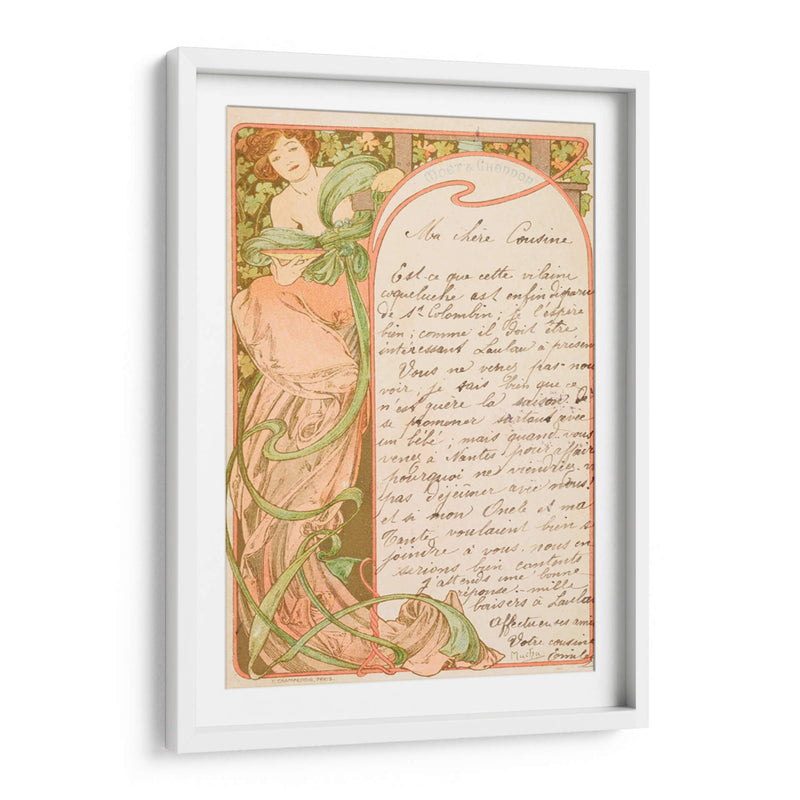 MOËT & CHANDON
Ma chère Cousine
Est-ce que cette vilaine
coqueluche est enfin disparue
de St Colombin; je l'espère
bien; comme il doit être
intéressant Laulau à présen
Vous ne venez pas nou
voir; je sais bien que ce
n'est guère la saison de
se promener surtout avec
un bébé; mais quand vous
venez à Nantes pour affair
pourquoi ne viendriez v
pas déjeuner avec nous!
et si mon Oncle et ma
Tante voulaient bien s
joindre à vous nous en
serions bien contents
J'attends une bonne
réponse. mille
baisers à Laulau
Affectueuses ami
Votre cousine
Mucha
F. CHAMPENOIS, PARIS.